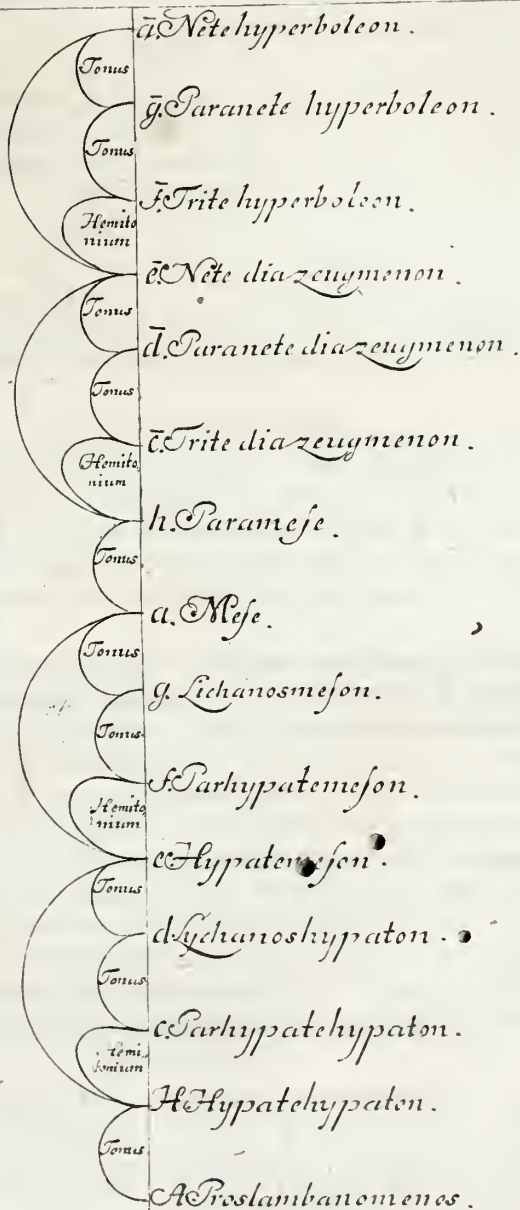 ā. Nete hyperboleon.
Tonus
ḡ. Paranete hyperboleon.
Tonus
f̄. Trite hyperboleon.
Hemito
nium
ē. Nete diazeugmenon.
Tonus
d̄. Paranete diazeugmenon.
Tonus
c̄. Trite diazeugmenon.
Hemito,
nium
h. Parameſe.
Tonus
a. Meſe.
Tonus
g. Lichanosmeſon.
Tonus
f. Parhypatemeſon.
Hemito,
nium
e Hypatemeſon.
Tonus
d Lychanoshypaton.
Tonus
c. Parhypatehypaton.
Hemi,
tonium
H Hypatehypaton.
Tonus
A Proslambanomenos.